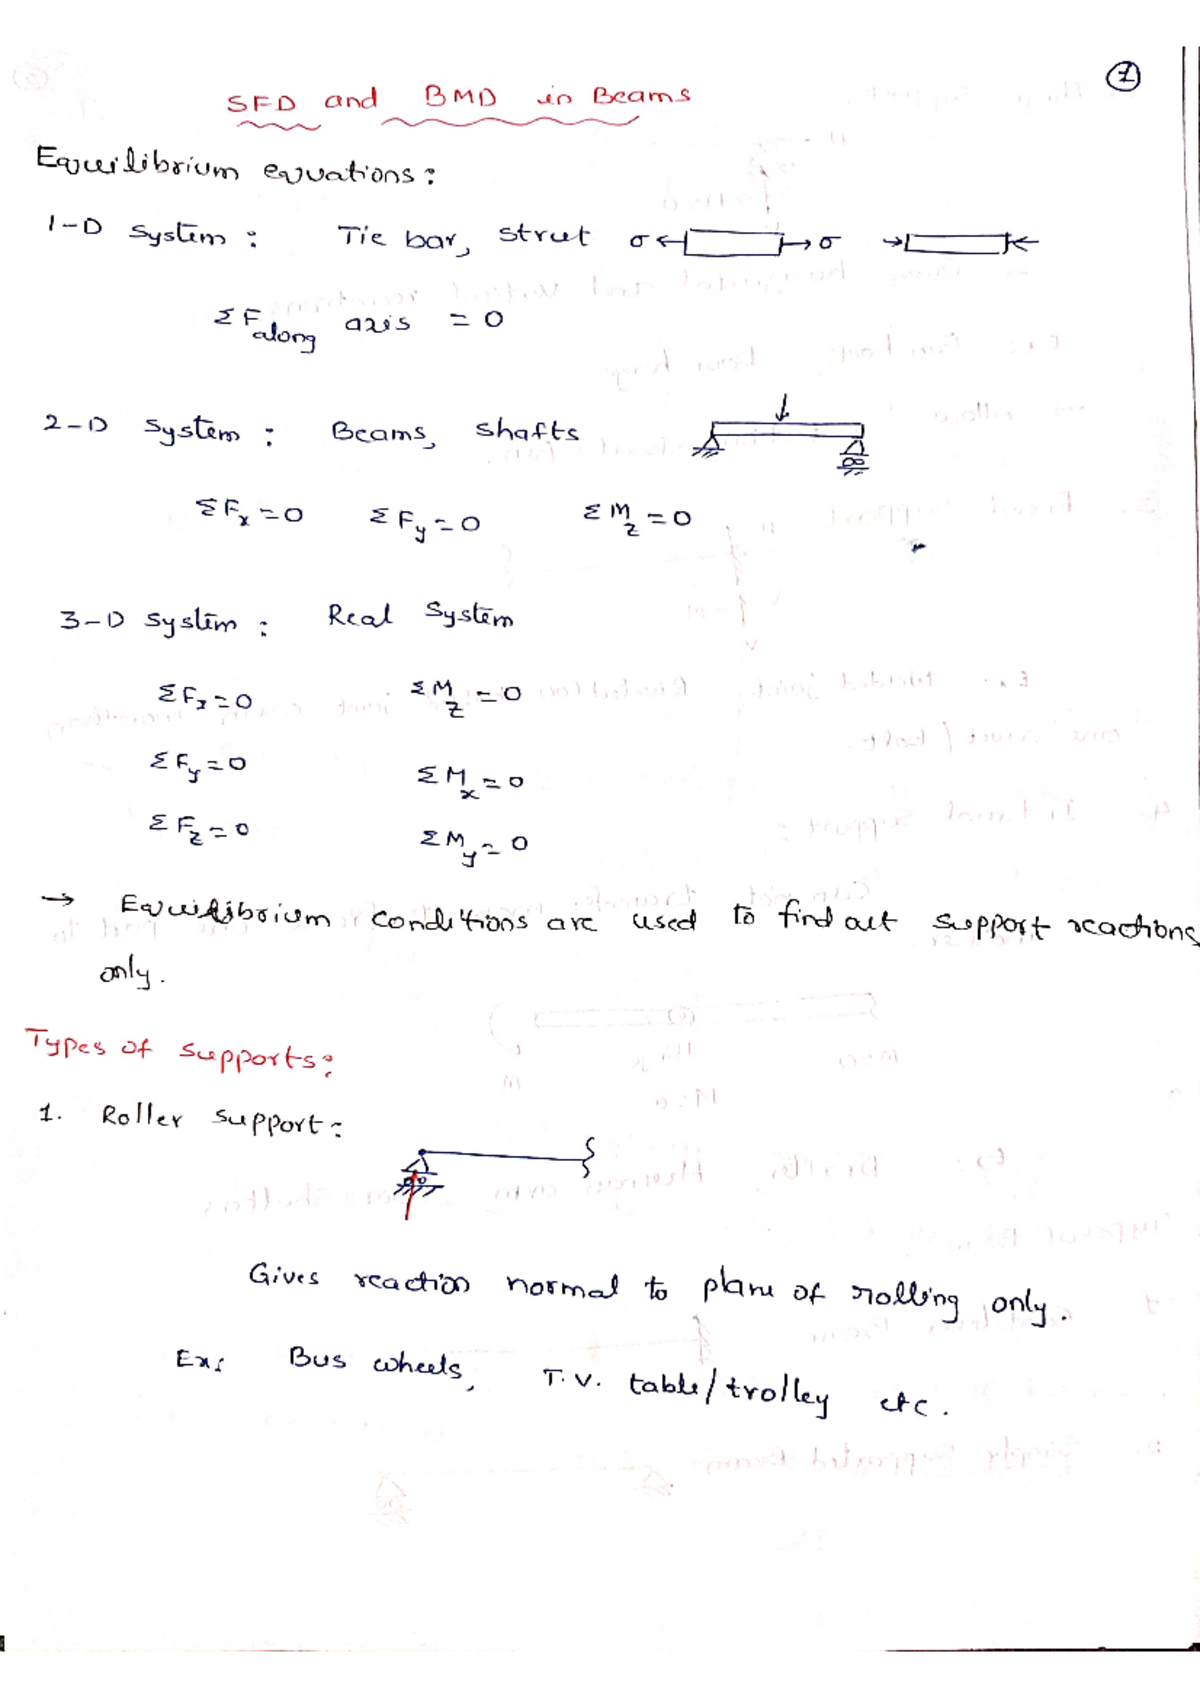 1
SFD and BMD in Beams
Equilibrium equations:
1-D System: Tie bar, strut σ σ
ΣF along axis = 0
2-D System: Beams, shafts
ΣFx=0 ΣFy=0 ΣMz=0
3-D System: Real System
ΣFx=0 ΣMz=0
ΣFy=0 ΣMx=0
ΣFz=0 ΣMy=0
→ Equilibrium conditions are used to find out support reactions
only.
Types of supports:
1. Roller support:
Gives reaction normal to plane of rolling only.
Ex: Bus wheels, T.V. table/trolley etc.